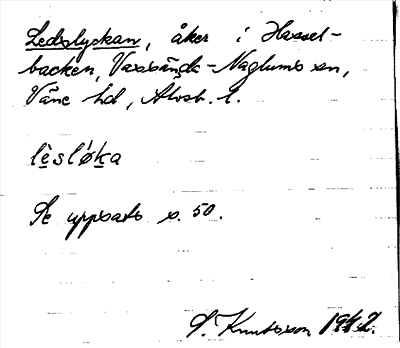 Ledslyckan, åker i Hassel-
backen, Vassända-Naglums sn,
Väne hd, Älvsb. l.
lèsløka
Se uppsats s. 50.
S. Knutsson 1942.